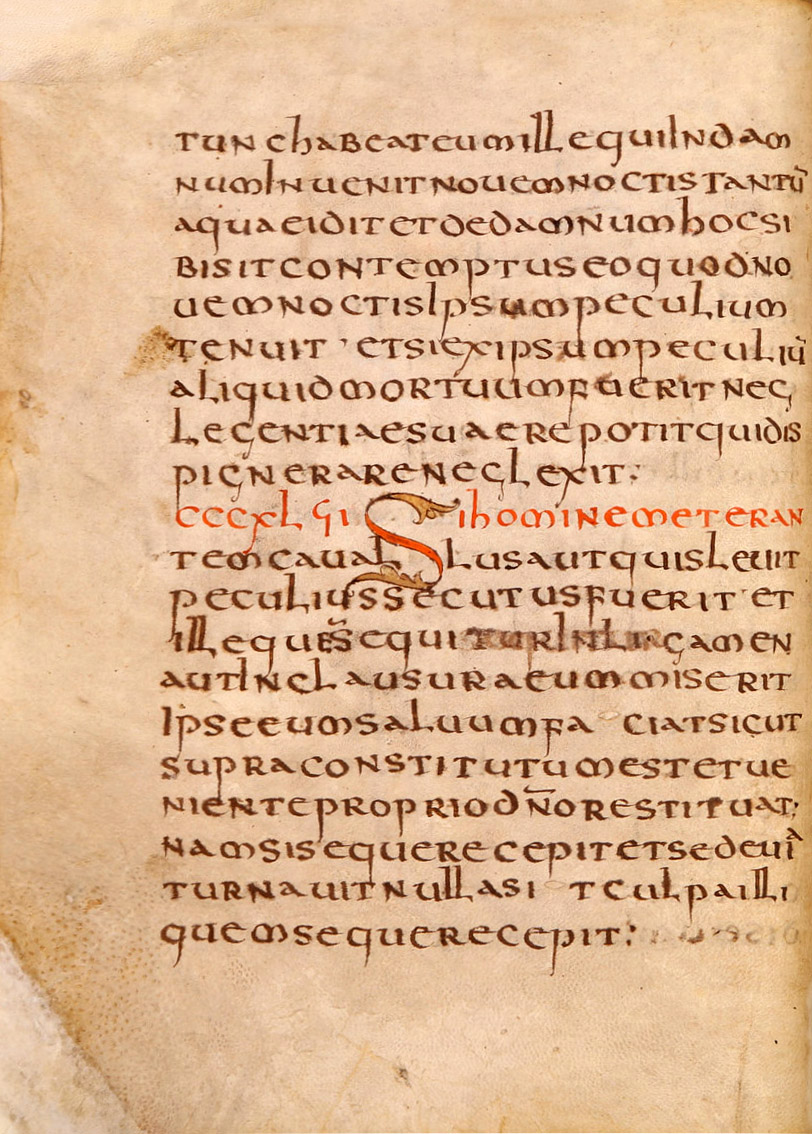 tunc habeat eum ille qui in dam
num inuenit nouem noctis tantū
aqua ei di it et de damnum hoc si
bi sit contemptus eo quod no
uem noctis ipsum peculium
tenuit · et si ex ipsum peculiū
aliquid mortuum fuerit nec
legentiae suae repotit qui dis
pignerare neglexit :
cccxlvi Si homin em et eran
tem cauallus aut quis leuit
peculius secutus fuerit et
ille qui es sequitur in
aut in clausura eum miserit
ipse eum saluum faciat sicut
supra constitutum est et ue
niente proprio dn̄o restituat;
nam si sequere cepit et se deuia
turnauit nulla sit culpa illi
quem sequere cepit :